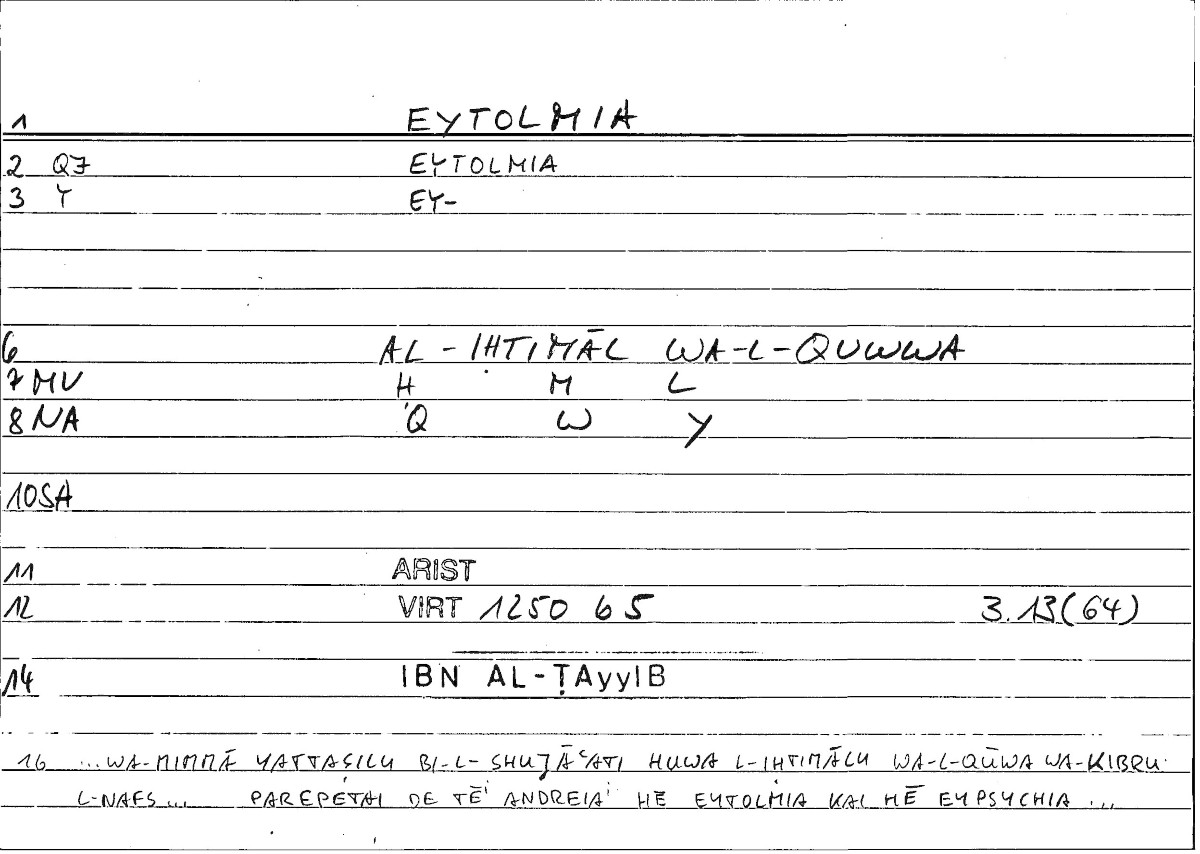 1 EYTOLMIA
2 QJ EYTOLMIA
3 Y EY-
6 AL-IḤTIMĀL WA-L-QUWWA
7 MV Ḥ M L
8 NA Q W Y
10 SA
11 ARIST
12 VIRT 1250 b 5 3.13(64)
14 IBN AL-ṬAyyIB
16 ...WA-MIMMĀ YATTAṢILU BI-L-SHUJĀʿATI HUWA L-IḤTIMĀLU WA-L-QŪWA WA-KIBRU
L-NAFS... PAREPETAI DE TĒI ANDREIAI HĒ EYTOLMIA KAI HĒ EYPSYCHIA ...